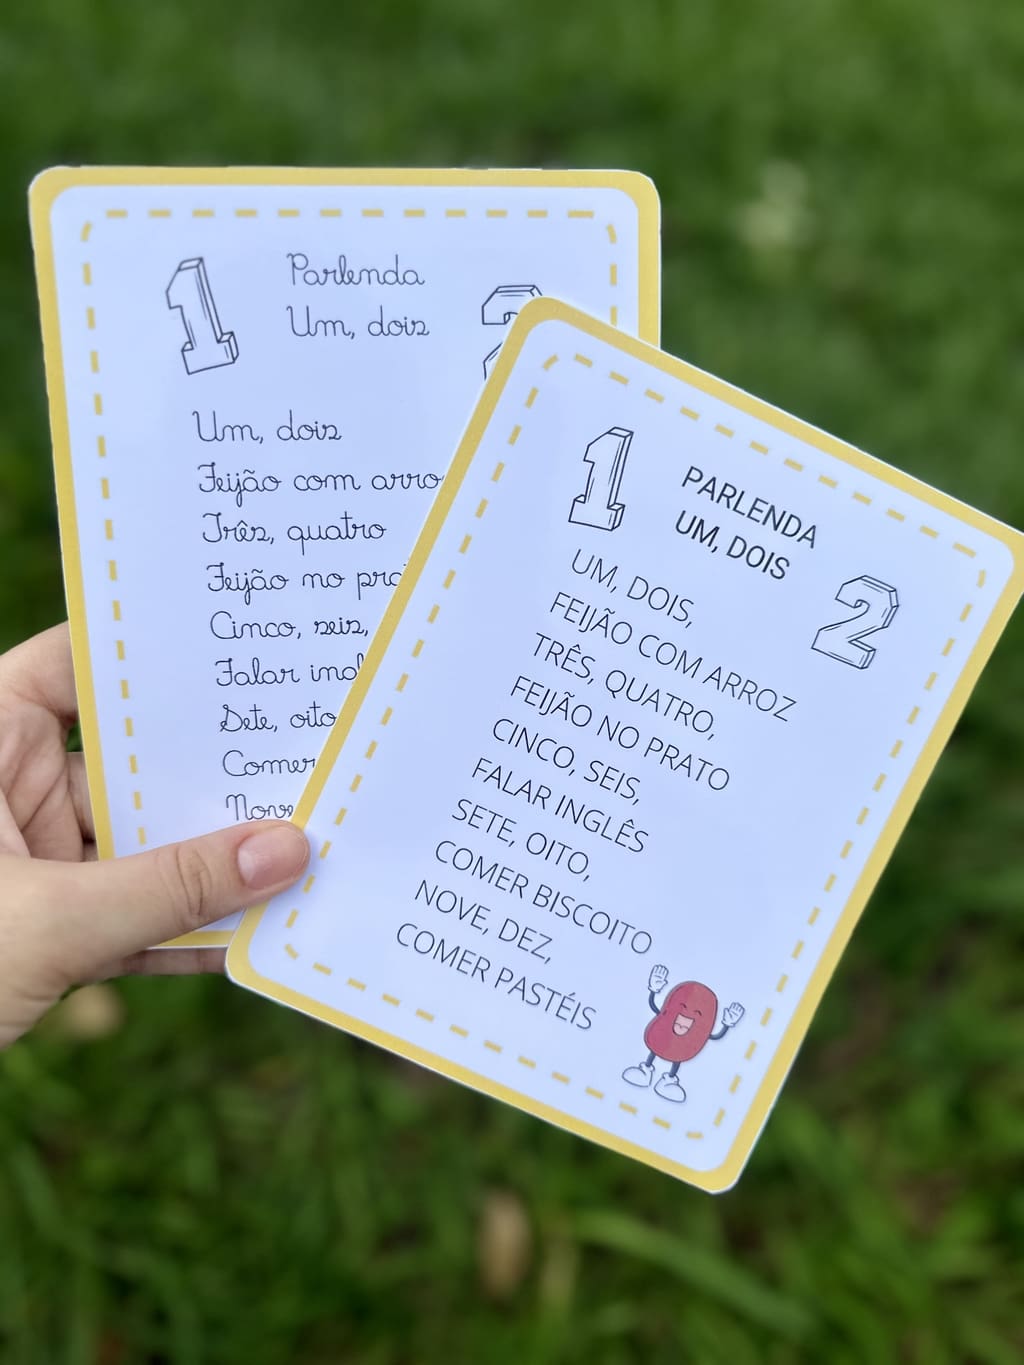 Parlenda
Um, dois
Um, dois
Feijão com
Três, quatro
Feijão no
Cinco, seis,
Falar
Sete, oito
Comer
Nove
1
PARLENDA
UM, DOIS
2
UM, DOIS,
FEIJÃO COM ARROZ
TRÊS, QUATRO,
FEIJÃO NO PRATO
CINCO, SEIS,
FALAR INGLÊS
SETE, OITO,
COMER BISCOITO
NOVE, DEZ,
COMER PASTÉIS
1